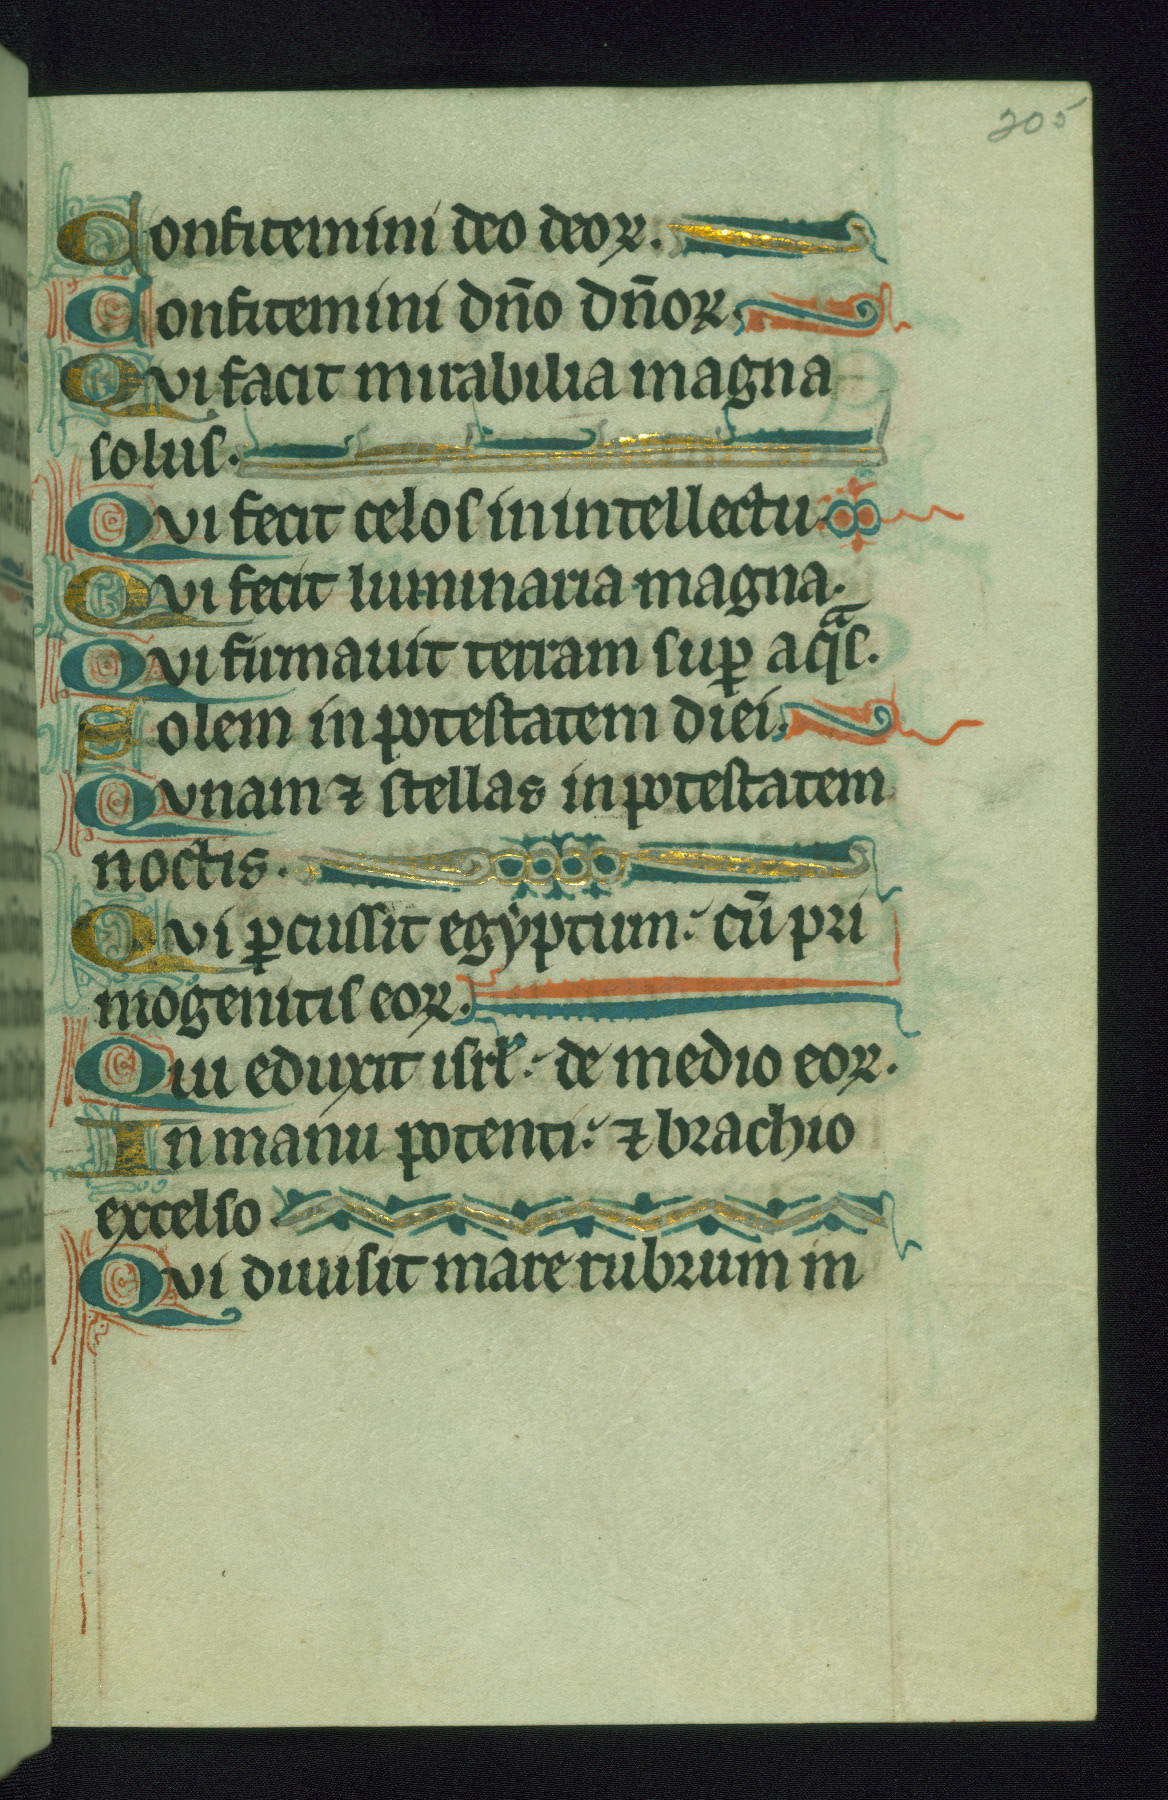 205
Confitemini deo deoꝝ.
Confitemini dn̄o dn̄oꝝ.
Qvi facit mirabilia magna
solus.
Qvi fecit celos in intellectu.
Qvi fecit luminaria magna.
Qvi firmauit terram suꝑ aqͣs.
Solem in potestatem diei.
Qvnam ⁊ stellas in potestatem
noctis.
Qvi ꝑcussit egyptum: cū pri
mogenitis eoꝝ.
Qui eduxit isrl̕: de medio eoꝝ.
In manu potenti: ⁊ brachio
excelso.
Qvi diuisit mare rubrum in